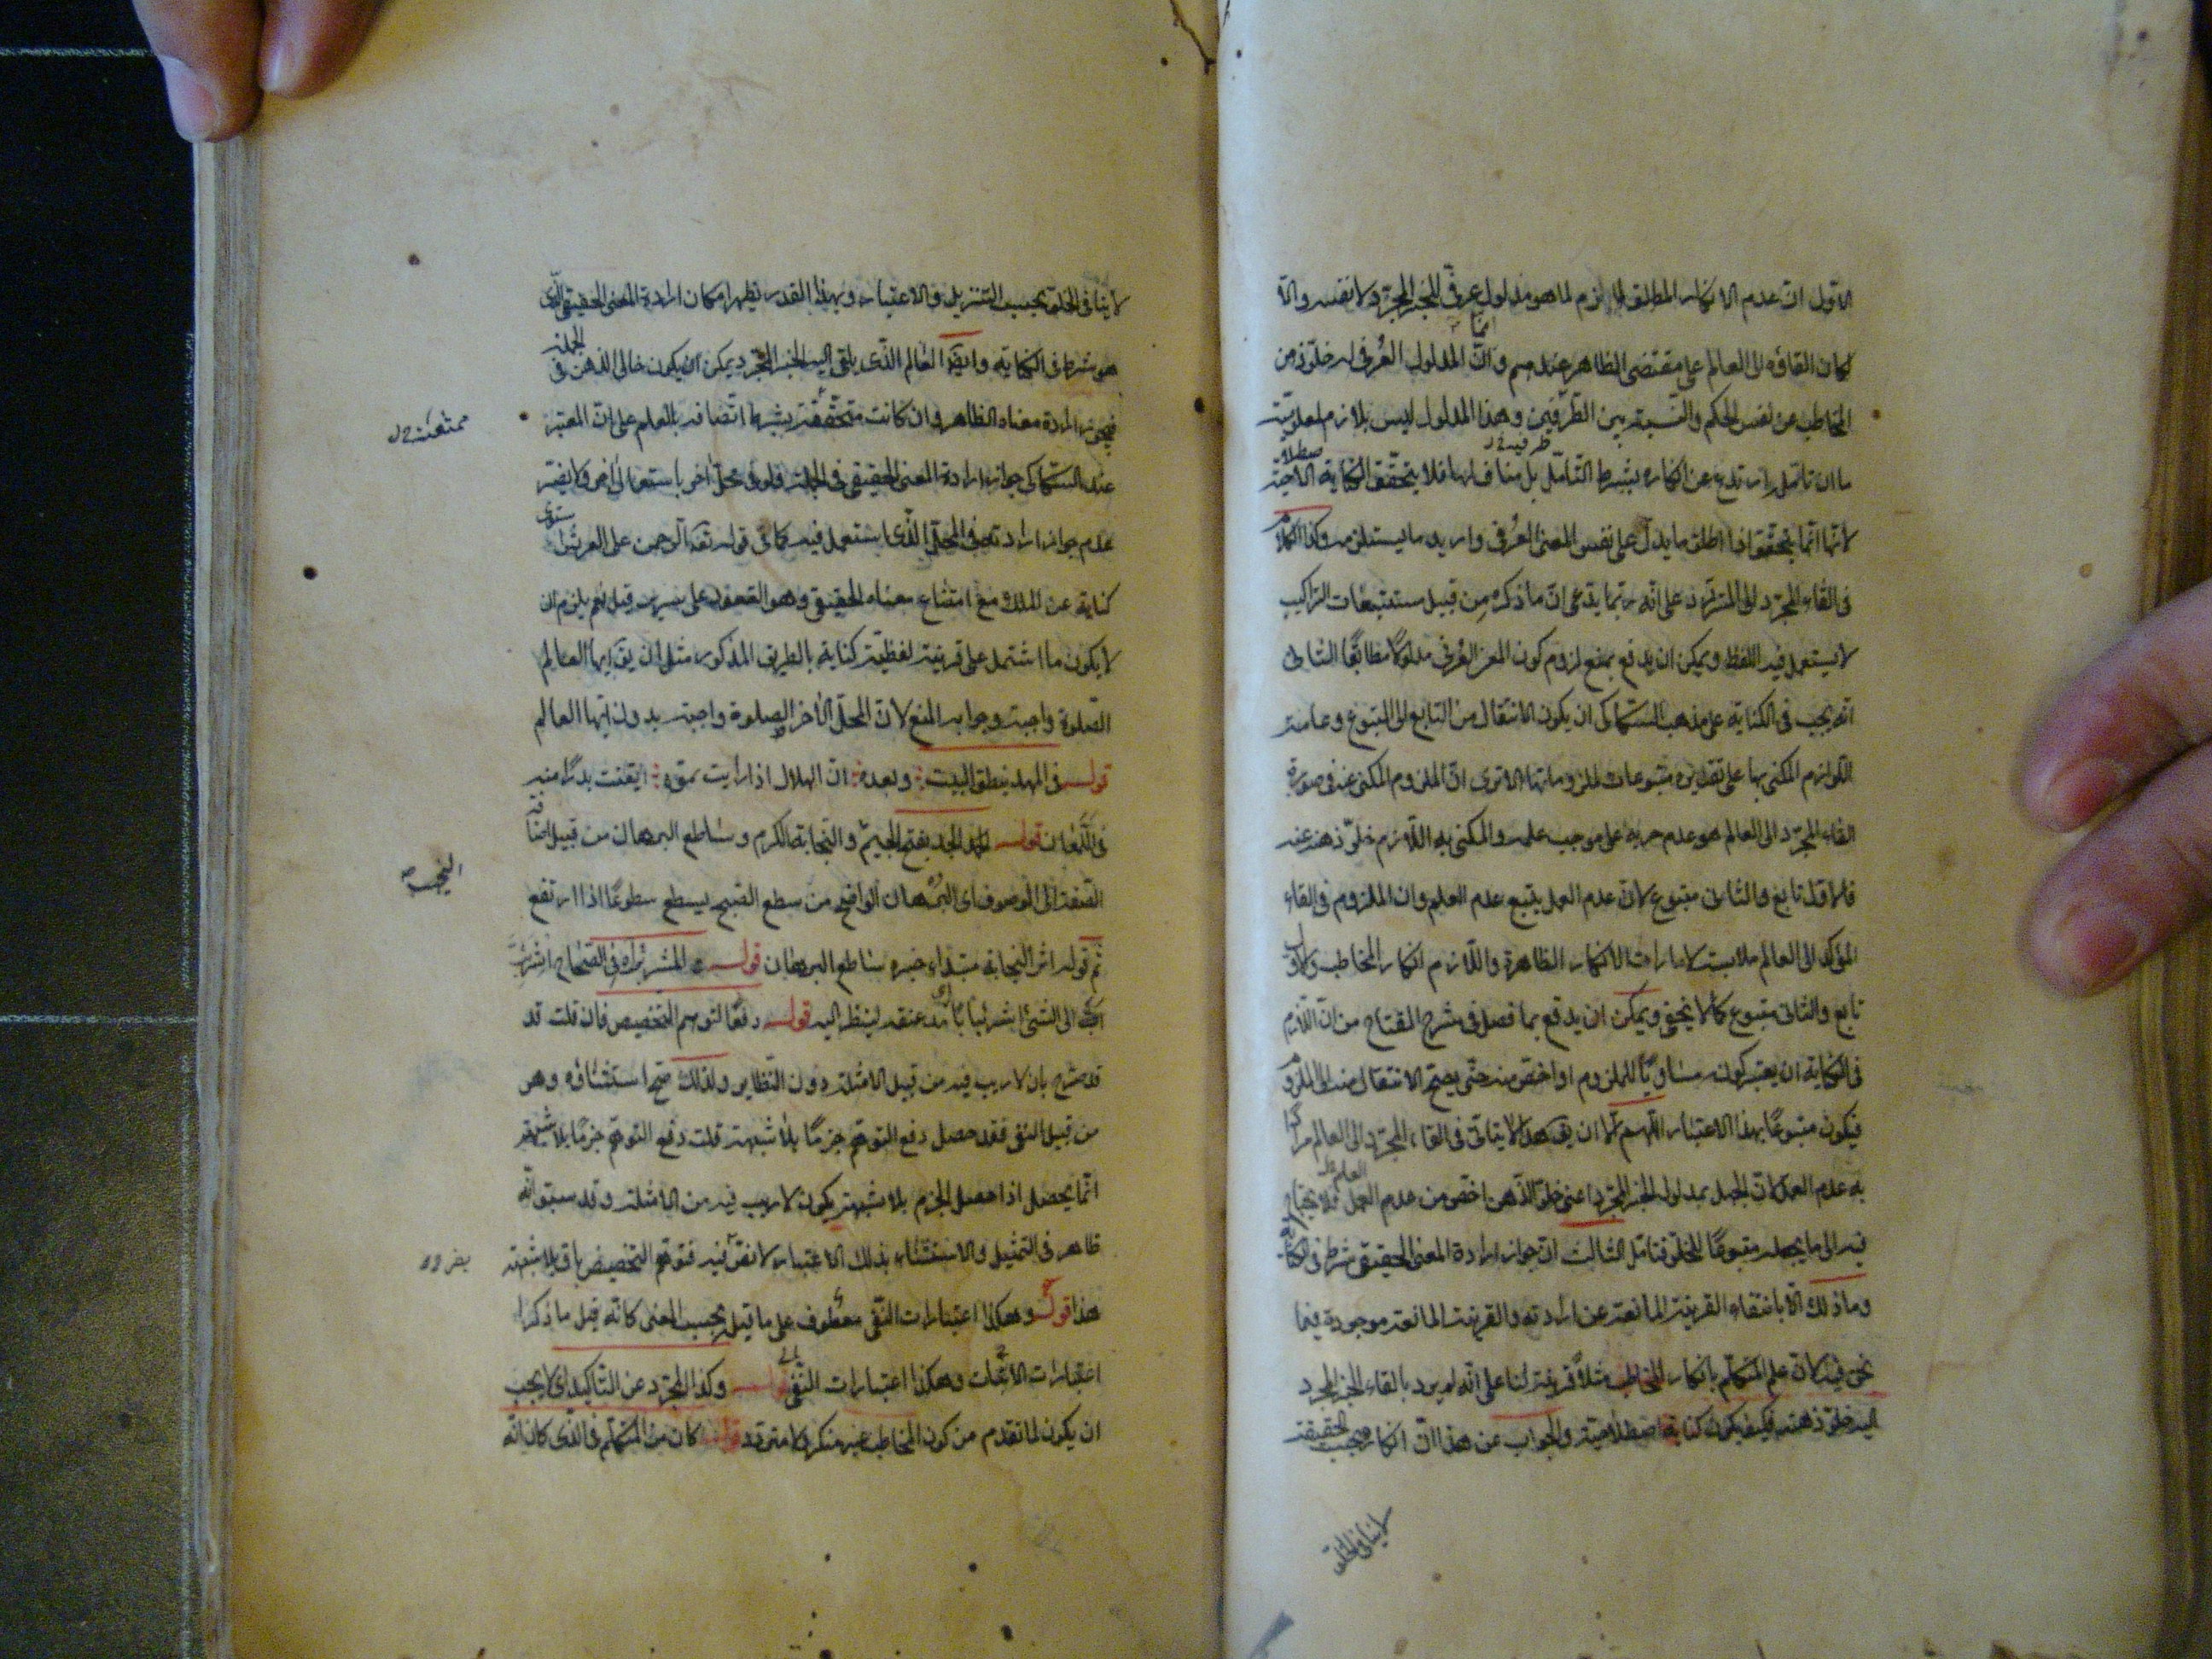 الاول ان عدم الانكار المطلق لازم لما هو مدلول عرفى للخبر المجرد لا نفسه والا
لكان القاؤه الى العالم على مقتضى الظاهر عندهم وايضا ان المدلول العرفى له خلو ذهن
المخاطب عن نفس الحكم والنسبة بين الطرفين وهذا المدلول ليس بلازم لمعلومية
ما ان تأمله ارتدع عن انكاره بشرط التأمل بل مناف لها فلا يتحقق الكناية الاصطلاحية
لانها انما تتحقق اذا اطلق ما يدل على نفس المعنى العرفى واريد ما يستلزمه وكذا الكلام
فى القاء المجرد الى المتردد على انه ربما يدعى ان ما ذكره من قبيل مستتبعات التراكيب
لا يستعمل فيه اللفظ ويمكن ان يدفع بمنع لزوم كون المعنى العرفى مدلولا مطابقا الثانى
انه يجب فى الكناية على مذهب السكاكى ان يكون الانتقال من التابع الى المتبوع وعامة
اللوازم المكنى بها على تقديره متبوعات لملزوماتها الا ترى ان الملزوم المكنى عنه فى صورة
القاء المجرد الى العالم هو عدم جريه على موجب علمه والمكنى به اللازم خلو ذهنه عنه
فالاول تابع والثانى متبوع لان عدم العمل يتبع عدم العلم وان الملزوم فى القاء
المؤكد الى العالم ملابسته لامارات الانكار الظاهرة واللازم انكار المخاطب والاول
تابع والثانى متبوع كما لا يخفى ويمكن ان يدفع بما فصل فى شرح المفتاح من ان اللازم
فى الكناية ان يعتبر كونه مساويا للملزوم او اخص منه حتى يصح الانتقال منه الى الملزوم
فيكون متبوعا بهذا الاعتبار اللهم الا ان يقال هذا لا يتأتى فى القاء المجرد الى العالم مرادا
به عدم العمل لان الجهل بمدلول الخبر المجرد اعنى خلو الذهن اخص من عدم العمل فلا يحتاج
فيه الى ما يجعله متبوعا للخلو فتأمل الثالث ان جواز ارادة المعنى الحقيقى شرط فى الكناية
وما ذلك الا بانتفاء القرينة المانعة عن ارادته والقرينة المانعة موجودة فيما
نحن فيه لان علم المتكلم بانكار المخاطب مثلا قرينة لنا على انه لم يرد بالقاء الخبر المجرد
اليه خلو ذهنه فكيف يكون كناية اصطلاحية والجواب عن هذا ان انكاره بحسب الحقيقة
لا ينافى الخلو
لا ينافى الخلو بحسب التنزيل والاعتبار وبهذا القدر يظهر امكان ارادة المعنى الحقيقى الذى
هو شرط فى الكناية وايضا العالم الذى يلقى اليه الخبر المجرد يمكن ان يكون خالى الذهن فى الجملة
فيجوز ارادة معناه الظاهر وان كانت متحققة بشرط اتصافه بالعلم على ان المعتبر
عند السكاكى جواز ارادة المعنى الحقيقى فى الجملة ولو فى محل آخر باستعمال آخر ولا يضر
عدم جواز ارادته فى المحل الذى استعمل فيه كما فى قوله تعه الرحمن على العرش استوى
كناية عن الملك مع امتناع معناه الحقيقى وهو القعود على سرير قيل نعم يلزم ان
لا يكون ما اشتمل على قرينة لفظية كناية بالطريق المذكور مثل ان يقال ايها العالم
الصلوة واجبة وجوابه المنع لان المحل الآخر الصلوة واجبة بدون ايها العالم
قوله فى المهد ينطق البيت وبعده ان الهلال اذا رأيت نموه ايقنت بدرا منه
فى اللمعان قوله الجد بفتح الجيم والنجابة الكرم وساطع البرهان من قبيل اضافة
الصفة الى الموصوف اى البرهان الواضح من سطع الصبح يسطع سطوعا اذا ارتفع
ثم قوله اثر النجابة مبتداء خبره ساطع البرهان قوله المشرئب فى الصحاح اشرأب
الى الشئ اشرئبابا مد عنقه لينظر اليه قوله دفعا لتوهم التخصيص فان قلت قد
قد صرح بان لا ريب فيه من قبيل الامثلة دون النظاير ولذلك صح استثناؤه وهو
من قبيل النفى فقد حصل دفع التوهم جزما بلا شبهة قلت دفع التوهم جزما بلا شبهة
انما يحصل اذا حصل الجزم بلا شبهة بكون لا ريب فيه من الامثلة وقد سبق انه
ظاهر فى التمثيل والاستثناء بذلك الاعتبار لا نص فيه فتوهم التخصيص باق بلا شبهة
هذا قوله وهكذا اعتبارات النفى معطوف على ما قبله بحسب المعنى كانه قيل ما ذكر
اعتبارات الاثبات وهكذا اعتبارات النفى قوله وكذا المجرد عن التأكيد اى لا يجب
ان يكون لما تقدم من كون المخاطب غير منكر ولا متردد قوله كان من المتكلم فى الذى كان انه